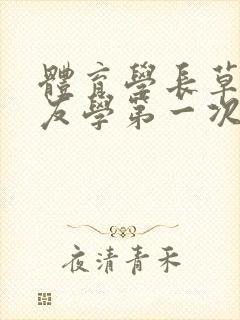 體育學長草
友學第一次
夜清青禾